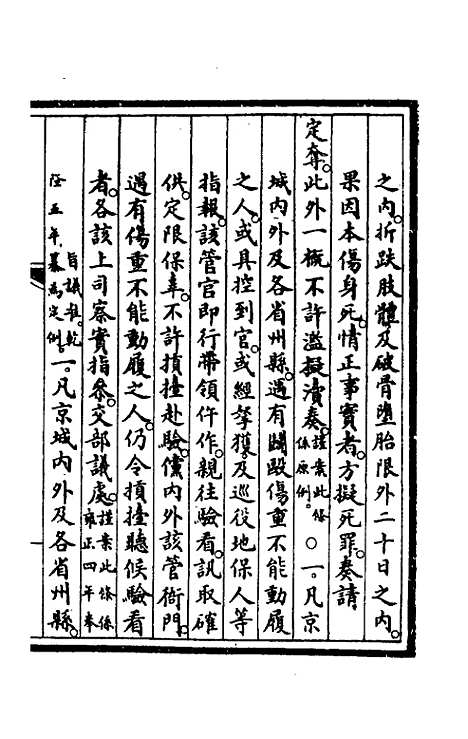 之內。折跌肢體及破骨墮胎限外二十日之內。
果因本傷身死。情正事實者。方擬死罪。奏請
定奪。此外一概不許濫擬瀆奏。謹案此條係原例。○一。凡京
城內外及各省州縣。遇有鬭毆傷重不能動履
之人。或具控到官。或經拏獲。及巡役地保人等
指報。該管官即行帶領仵作。親往驗看。訊取確
供。定限保辜。不許擡赴驗。儻內外該管衙門。
遇有傷重不能動履之人。仍令擡聽候驗看
者。各該上司察實指參。交部議處。謹案此條係雍正四年奉
旨議准。乾隆五年。纂為定例。一。凡京城內外及各省州縣。